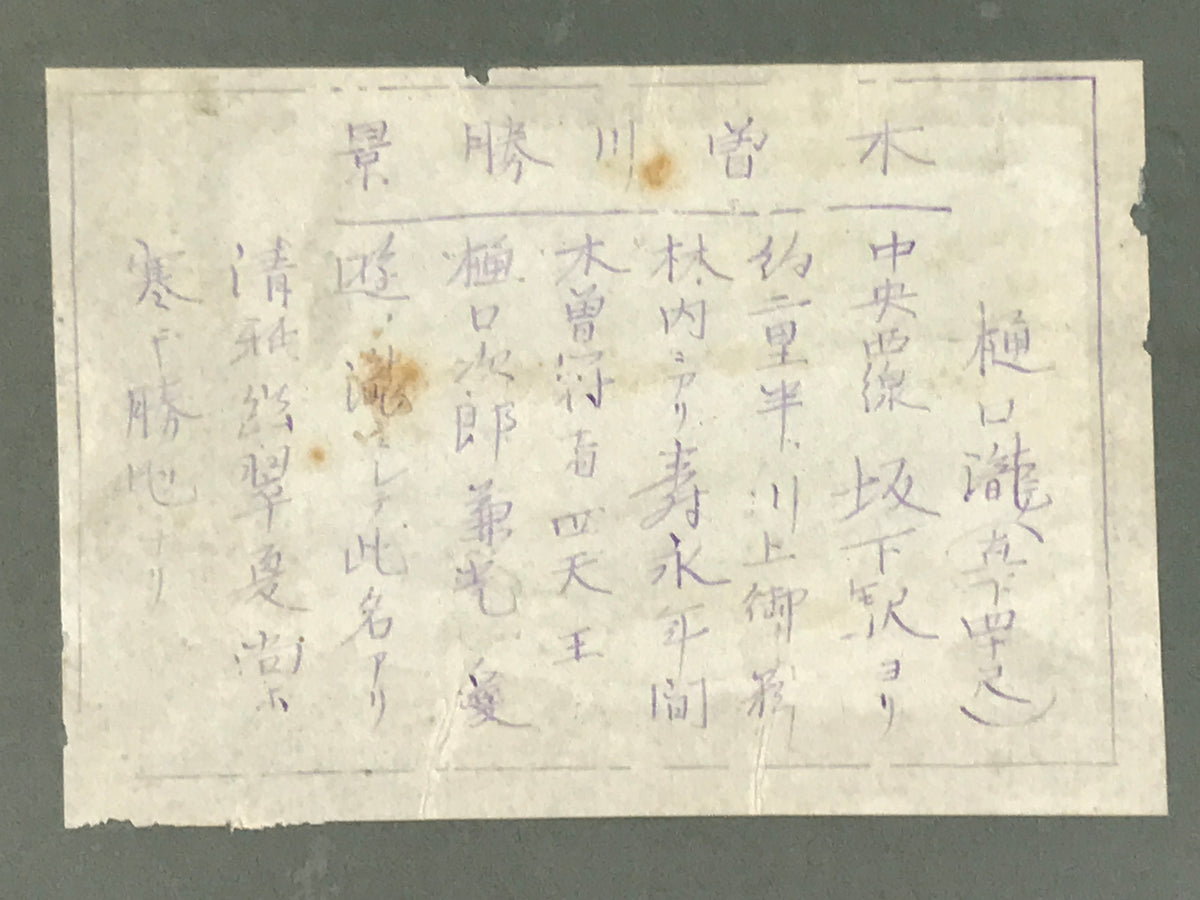 木曽川勝景
樋口瀧(直下四十尺)
中央西線坂下駅ヨリ
約二里半川上御料
林内ニアリ寿永年間
木曽冠者四天王
樋口次郎兼光愛
遊ノ瀧ニシテ此名アリ
清雅幽翠夏尚ホ
寒キ勝地ナリ